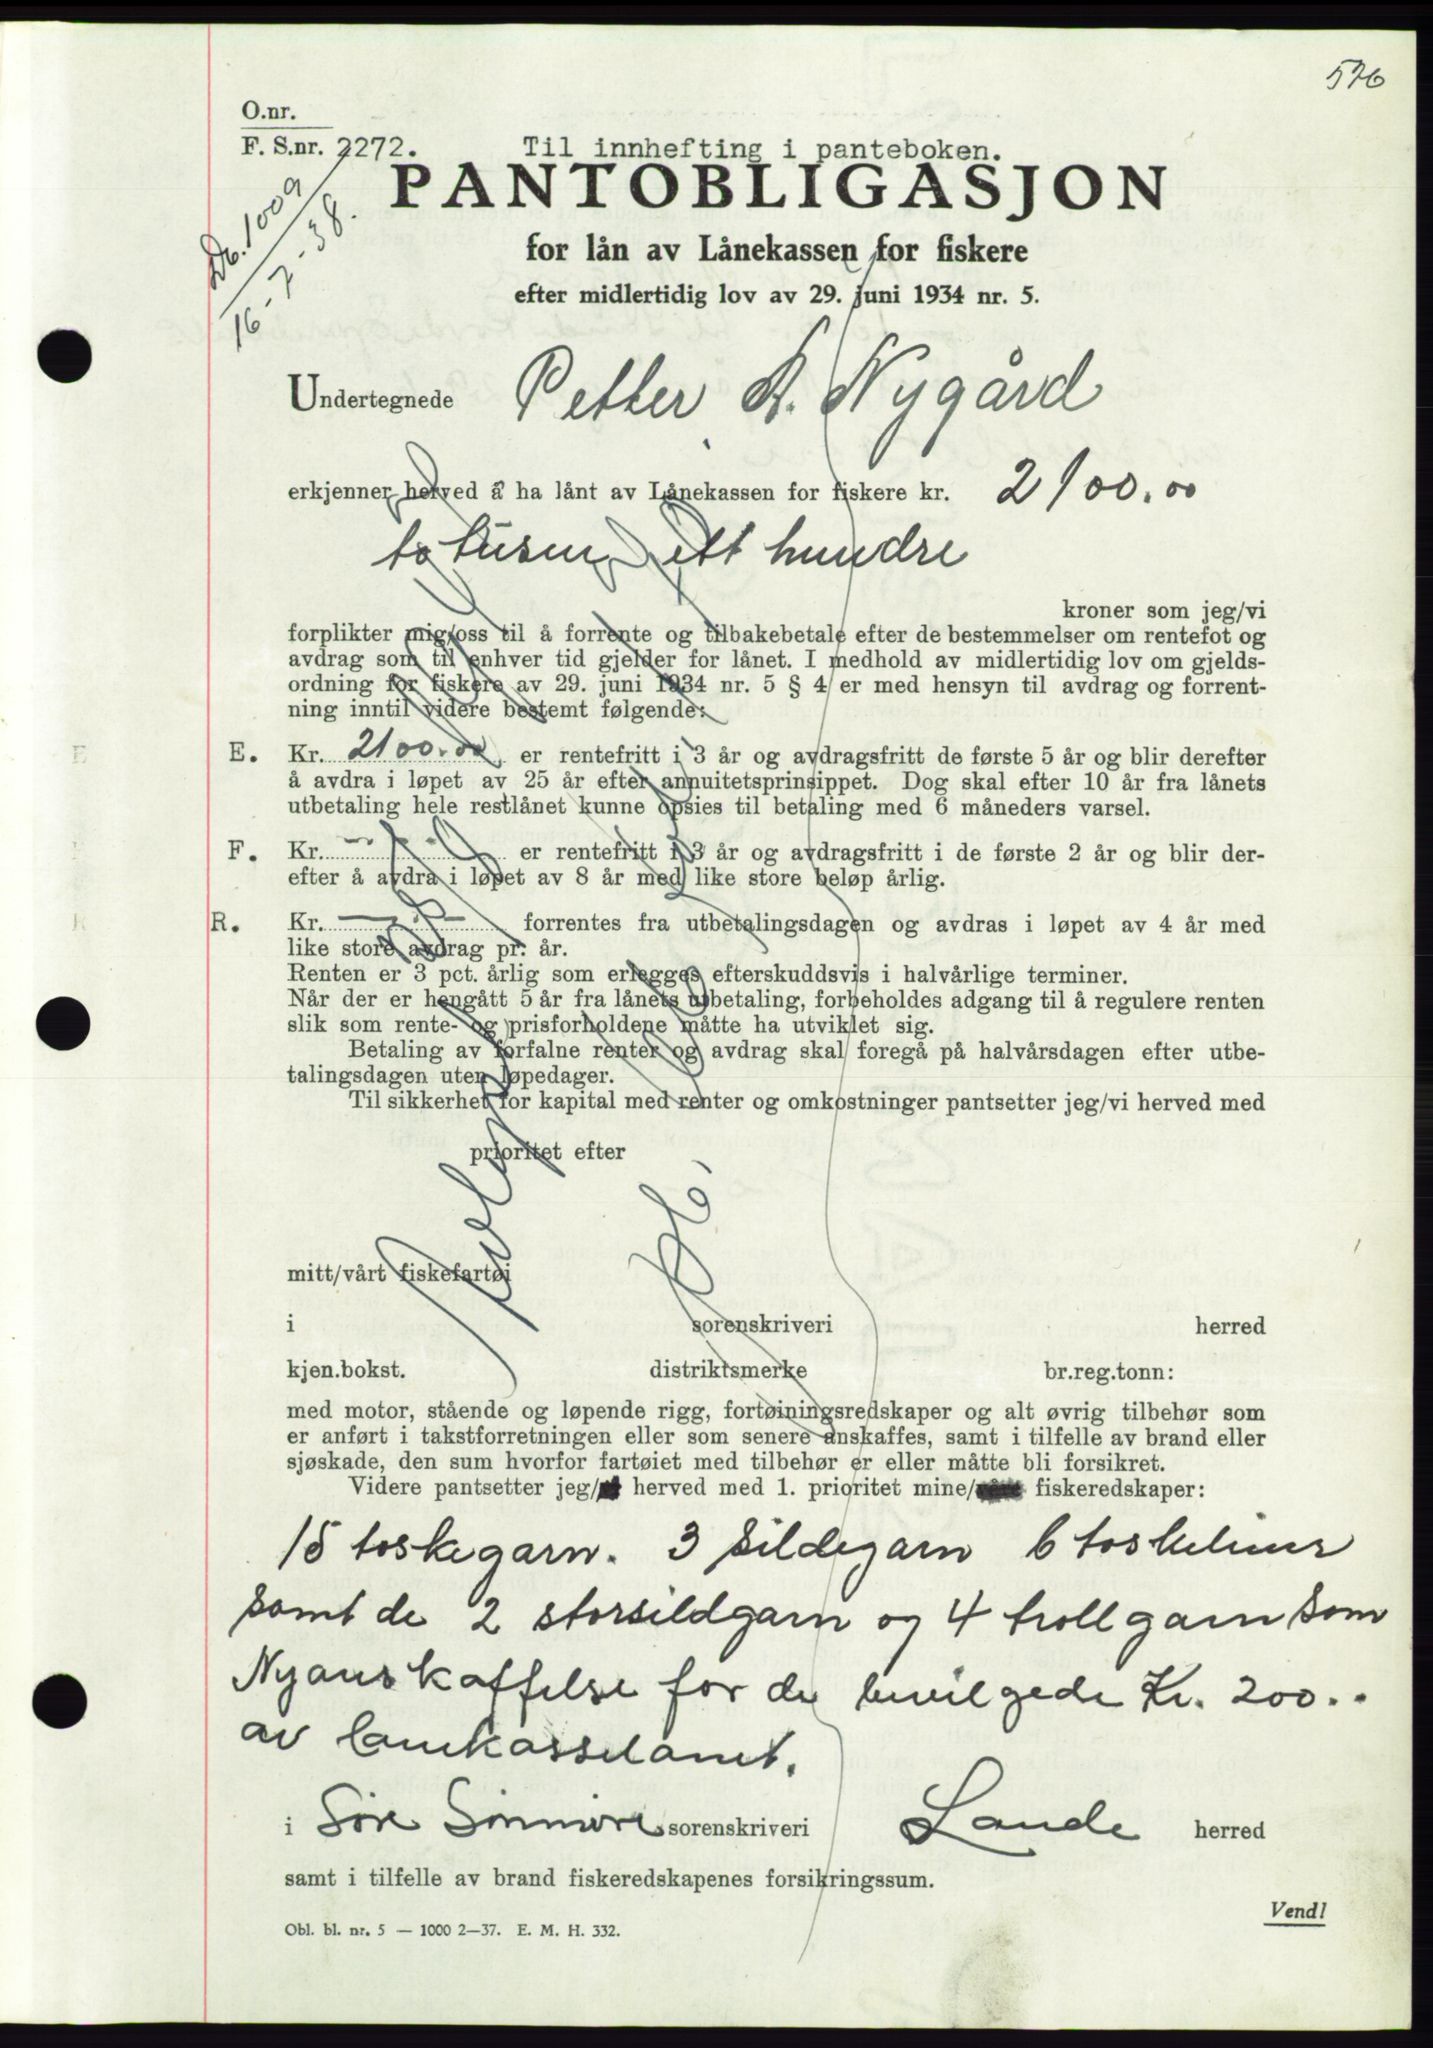 576
O.nr.
F. S.nr. 2272.
Til innhefting i panteboken.
Db. 1009
16-7-38.
PANTOBLIGASJON
for lån av Lånekassen for fiskere
efter midlertidig lov av 29. juni 1934 nr. 5.
Undertegnede Petter A. Nygård
erkjenner herved å ha lånt av Lånekassen for fiskere kr. 2100.00
to tusen ett hundre
kroner som jeg/vi
forplikter mig/oss til å forrente og tilbakebetale efter de bestemmelser om rentefot og
avdrag som til enhver tid gjelder for lånet. I medhold av midlertidig lov om gjelds-
ordning for fiskere av 29. juni 1934 nr. 5 § 4 er med hensyn til avdrag og forrent-
ning inntil videre bestemt følgende:
E. Kr. 2100.00 er rentefritt i 3 år og avdragsfritt de første 5 år og blir derefter
å avdra i løpet av 25 år efter annuitetsprinsippet. Dog skal efter 10 år fra lånets
utbetaling hele restlånet kunne opsies til betaling med 6 måneders varsel.
F. Kr. er rentefritt i 3 år og avdragsfritt i de første 2 år og blir der-
efter å avdra i løpet av 8 år med like store beløp årlig.
R. Kr. forrentes fra utbetalingsdagen og avdras i løpet av 4 år med
like store avdrag pr. år.
Renten er 3 pct. årlig som erlegges efterskuddsvis i halvårlige terminer.
Når der er hengått 5 år fra lånets utbetaling, forbeholdes adgang til å regulere renten
slik som rente- og prisforholdene måtte ha utviklet sig.
Betaling av forfalne renter og avdrag skal foregå på halvårsdagen efter utbe-
talingsdagen uten løpedager.
Til sikkerhet for kapital med renter og omkostninger pantsetter jeg/vi herved med
prioritet efter
mitt/vårt fiskefartøi
i sorenskriveri herred
kjen.bokst. distriktsmerke br.reg.tonn:
med motor, stående og løpende rigg, fortøiningsredskaper og alt øvrig tilbehør som
er anført i takstforretningen eller som senere anskaffes, samt i tilfelle av brand eller
sjøskade, den sum hvorfor fartøiet med tilbehør er eller måtte bli forsikret.
Videre pantsetter jeg/ herved med 1. prioritet mine/ fiskeredskaper:
15 toskegarn. 3 sildegarn 6 toskeliner
samt de 2 storsildgarn og 4 trollgarn som
Nyanskaffelse for de bevilgede Kr. 200..
av lånekasselånet.
i Søre Sunnmøre sorenskriveri Sande herred
samt i tilfelle av brand fiskeredskapenes forsikringssum.
Vend!
Obl. bl. nr. 5 — 1000 2—37. E. M. H. 332.